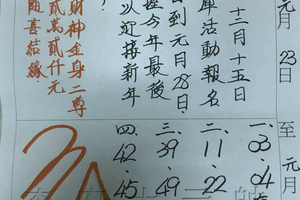 元月23日至元月
十二月十五日
庫活動報名
台到元月28日
握今年最後
以迎接新年
財神金身二尊
貳萬貳仟元
隨喜結緣
一.03.04
二.11.22
三.39.49
四.42.45